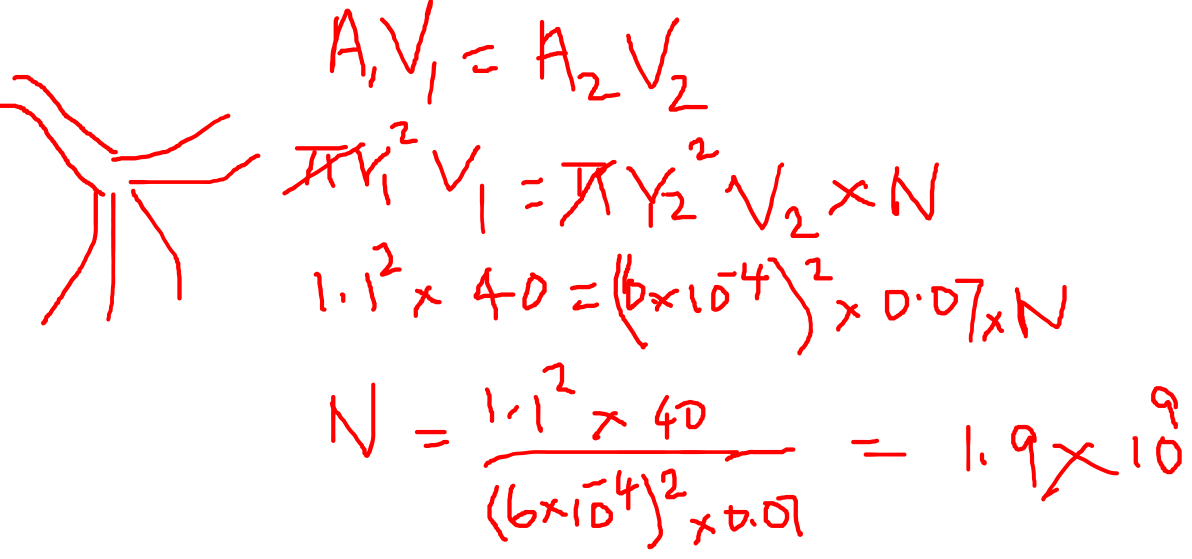 A₁V₁ = A₂V₂
πr₁²V₁ = πr₂²V₂ × N
1.1² × 40 = (6×10⁻⁴)² × 0.07 × N
N = 1.1² × 40 / (6×10⁻⁴)² × 0.07 = 1.9 × 10⁹